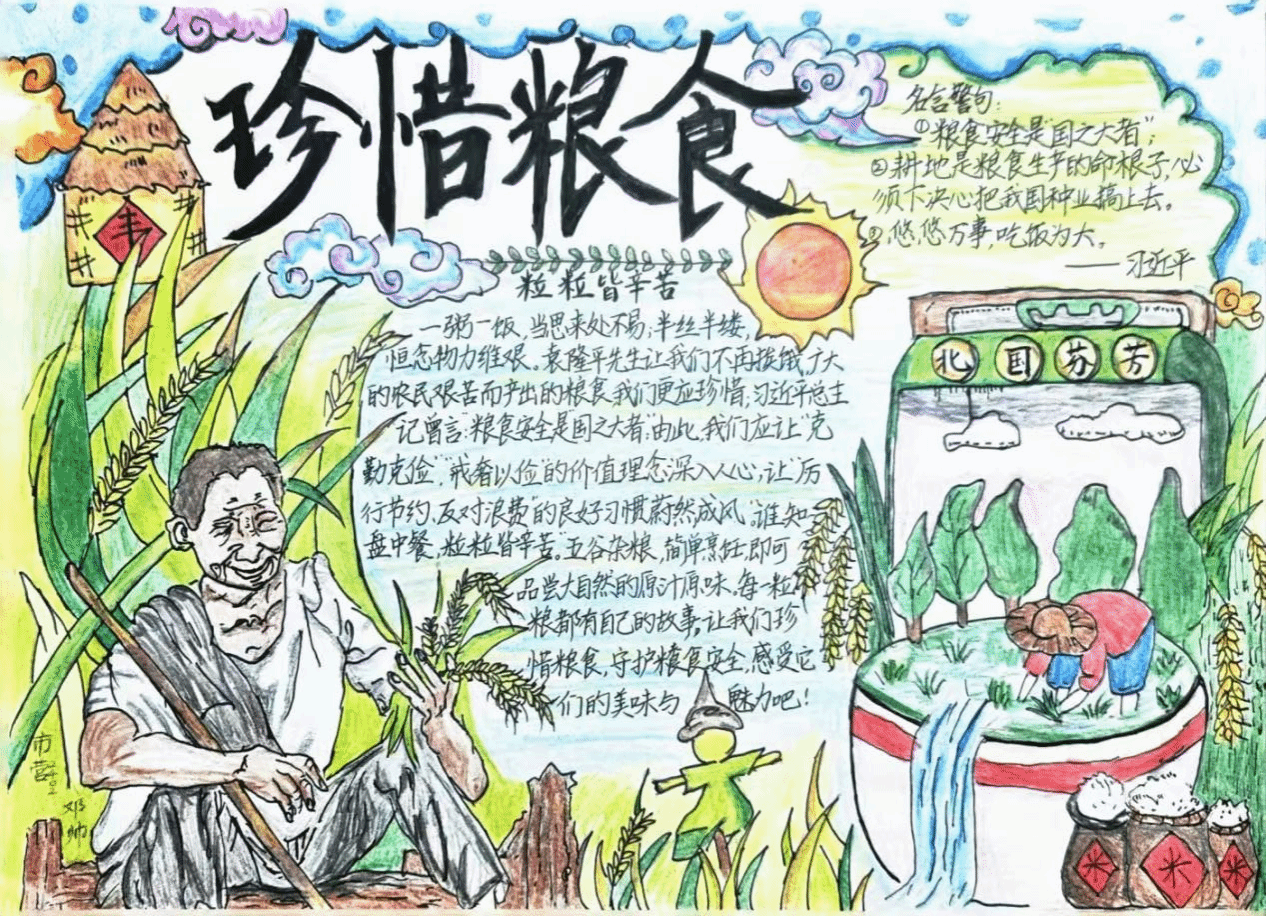 珍惜粮食
丰
名言警句:
①粮食安全是“国之大者”;
②耕地是粮食生产的命根子,必
须下决心把我国种业搞上去。
③悠悠万事,吃饭为大。
——习近平
粒粒皆辛苦
一粥一饭,当思来处不易;半丝半缕,
恒念物力维艰。袁隆平先生让我们不再挨饿,广大
的农民艰苦而产出的粮食,我们更应珍惜,习近平总主
记曾言:“粮食安全是国之大者”,由此,我们应让“克
勤克俭”,“戒奢以俭”的价值理念深入人心,让“厉
行节约、反对浪费”的良好习惯蔚然成风。“谁知
盘中餐,粒粒皆辛苦。”五谷杂粮,简单烹饪,即可
品尝大自然的原汁原味。每一粒
粮都有自己的故事,让我们珍
惜粮食,守护粮食安全,感受它
们的美味与 魅力吧!
北国芬芳
米
米
米
市营
邓帅